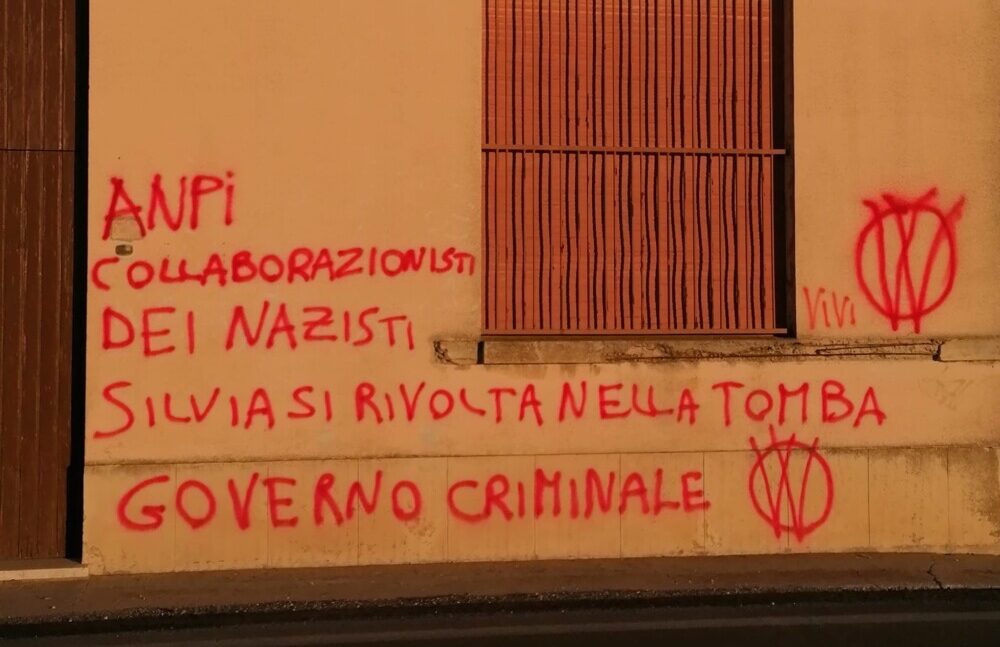 ANPI
COLLABORAZIONISTI
DEI NAZISTI
SILVIA SI RIVOLTA NELLA TOMBA
GOVERNO CRIMINALE
VIVI